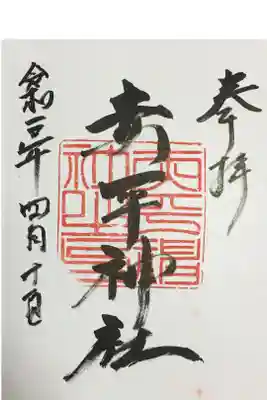 奉拝
安平神社
令和三年 四月十日